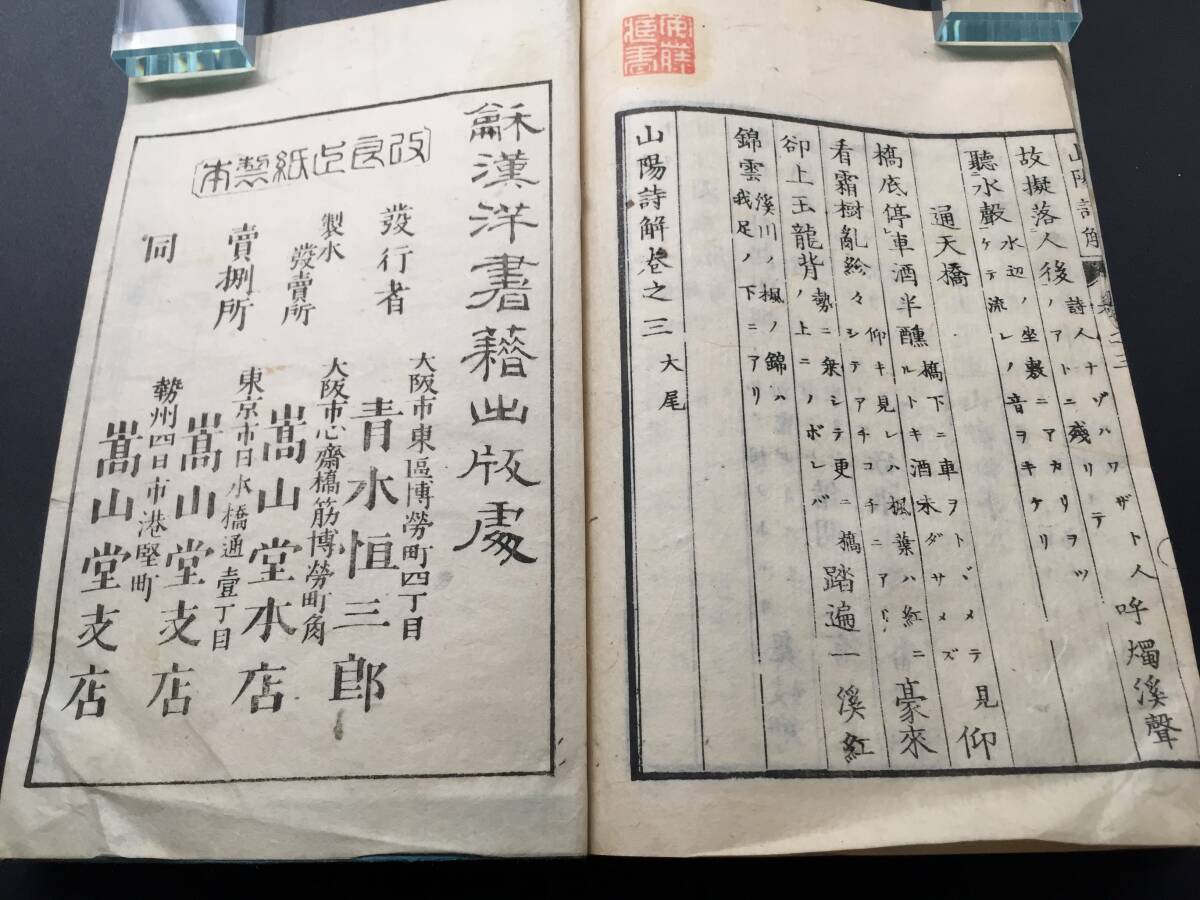 山陽詩解
故擬落人後 詩人ナゾハワザト人
ノアトニ殘リヰテ 呼燭溪聲
聽水聲 水辺ノ坐敷ニアカリヲツ
ケテ流レノ音ヲキケリ
通天橋
橋底停車酒半醺 橋下ニ車ヲトヾメテ見
ルトキ酒未ダサメズ 仰
看霜樹亂紛々 仰キ見レハ楓葉ハ紅ニ
シテアチコチニアリ 豪來
卻上玉龍背 勢ニ乗シテ更ニ橋
ノ上ニノボレバ 踏遍一溪紅
錦雲 溪川ノ楓ノ錦ハ
我足ノ下ニアリ
山陽詩解卷之三 大尾
龢漢洋書籍出版處
改良上紙製本
大阪市東區博勞町四丁目
發行者 青木恒三郎
大阪市心齋橋筋博勞町角
製本
發賣所 嵩山堂本店
東京市日本橋通壹丁目
賣捌所 嵩山堂支店
勢州四日市港竪町
同 嵩山堂支店